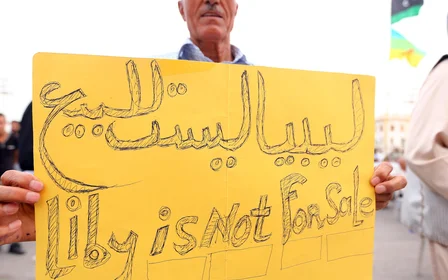 ليبيا ليست للبيع
Liby is Not for Sale